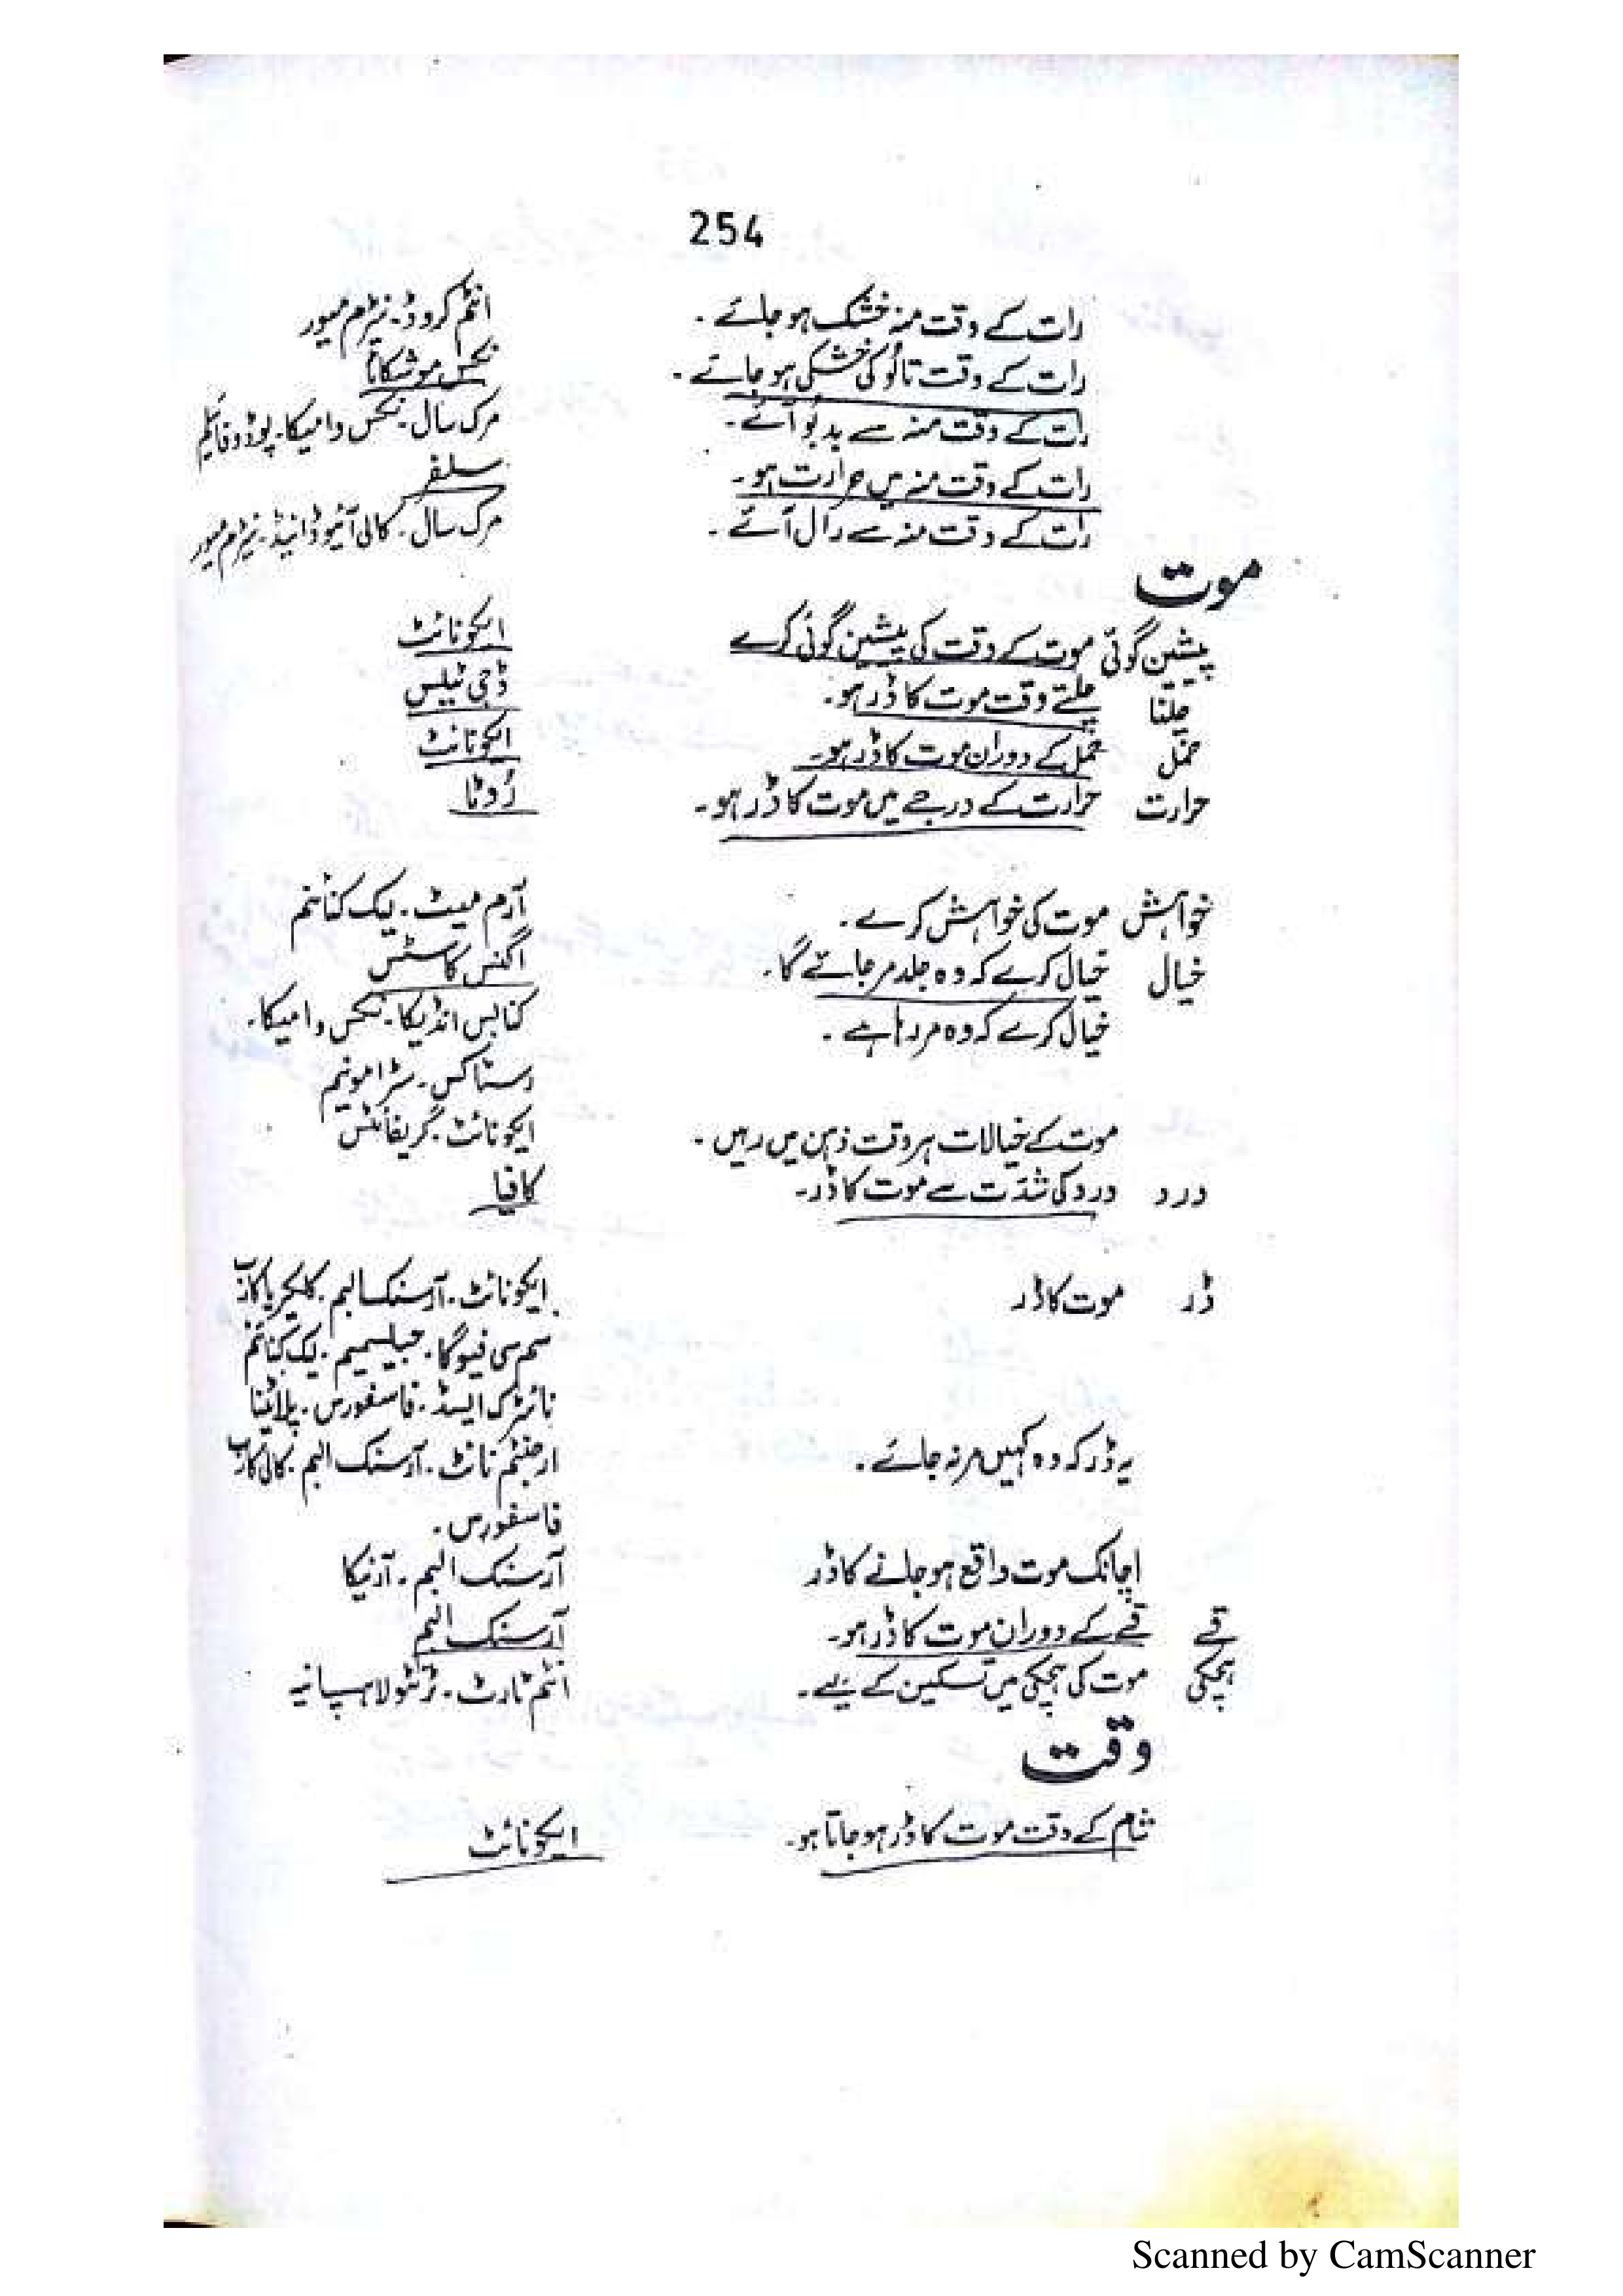 254
رات کے وقت منہ خشک ہو جائے ۔ انٹم کروڈ ۔ نیٹرم میور
رات کے وقت تالو کی خشکی ہو جائے ۔ نکس موشکاٹا
رات کے وقت منہ سے بدبو آئے ۔ مرک سال ۔ نکس وامیکا ۔ پوڈوفائیلم
رات کے وقت منہ میں حرارت ہو ۔ سلفر
رات کے وقت منہ سے رال آئے ۔ مرک سال ۔ کالی آئیوڈائیڈ ۔ نیٹرم میور
موت
پیشین گوئی موت کے وقت کی پیشین گوئی کرے ایکونائٹ
چلنا چلتے وقت موت کا ڈر ہو ۔ ڈجی ٹیلس
حمل حمل کے دوران موت کا ڈر ہو ۔ ایکونائٹ
حرارت حرارت کے درجے میں موت کا ڈر ہو ۔ رُوٹا
خواہش موت کی خواہش کرے ۔ آرم میٹ ۔ لیک کنائنم
خیال خیال کرے کہ وہ جلد مر جائے گا ۔ اگنس کاسٹس
خیال کرے کہ وہ مر رہا ہے ۔ کنابس انڈیکا ۔ نکس وامیکا ۔
رسٹاکس ۔ سٹرامونیم
موت کے خیالات ہر وقت ذہن میں رہیں ۔ ایکونائٹ ۔ گریفائٹس
درد درد کی شدّت سے موت کا ڈر ۔ کافیا
ڈر موت کا ڈر ایکونائٹ ۔ آرسنک البم ۔ کلکیریا کارب
سمی سی فیوگا ۔ جیلسیمیم ۔ لیک کنائنم
نائٹرک ایسڈ ۔ فاسفورس ۔ پلاٹینا
یہ ڈر کہ وہ کہیں مر نہ جائے ۔ ارجنٹم نائٹ ۔ آرسنک البم ۔ کالی کارب
فاسفورس ۔
اچانک موت واقع ہو جانے کا ڈر آرسنک البم ۔ آرنیکا
قے قے کے دوران موت کا ڈر ہو ۔ آرسنک البم
ہچکی موت کی ہچکی میں تسکین کے لیے ۔ انٹم ٹارٹ ۔ ٹرنٹولا ہسپانیہ
وقت
شام کے وقت موت کا ڈر ہو جاتا ہو ۔ ایکونائٹ
Scanned by CamScanner